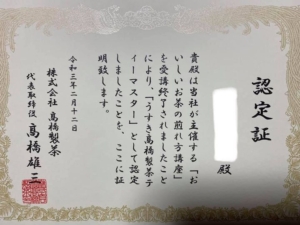 認定証
殿
貴殿は当社が主催する「お
いしいお茶の煎れ方講座」
を受講終了されましたこと
により、「うすき高橋製茶テ
ィーマスター」として認定
しましたことを、ここに証
明致します。
令和三年二月十二日
株式会社 高橋製茶
代表取締役 高橋雄三